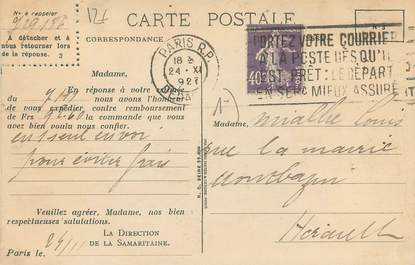 N° à rappeler
A détacher et à
nous retourner lors
de la réponse.
CARTE POSTALE
CORRESPONDANCE
PARIS R.P.
18
24 - XI
1927
40c
PORTEZ VOTRE COURRIER
A LA POSTE DÈS QU'IL
EST PRÊT : LE DÉPART
EN SERA MIEUX ASSURÉ
Madame,
En réponse à votre
du nous avons l'honneur
de vous expédier contre remboursement
de Frs 92.60 la commande que vous
avez bien voulu nous confier
en 1 seul envoi
pour éviter frais
Veuillez agréer, Madame, nos bien
respectueuses salutations.
LA DIRECTION
DE LA SAMARITAINE.
Paris le 24/11
Madame, Mialhe Louis
rue la mairie
Montbazin
Hérault